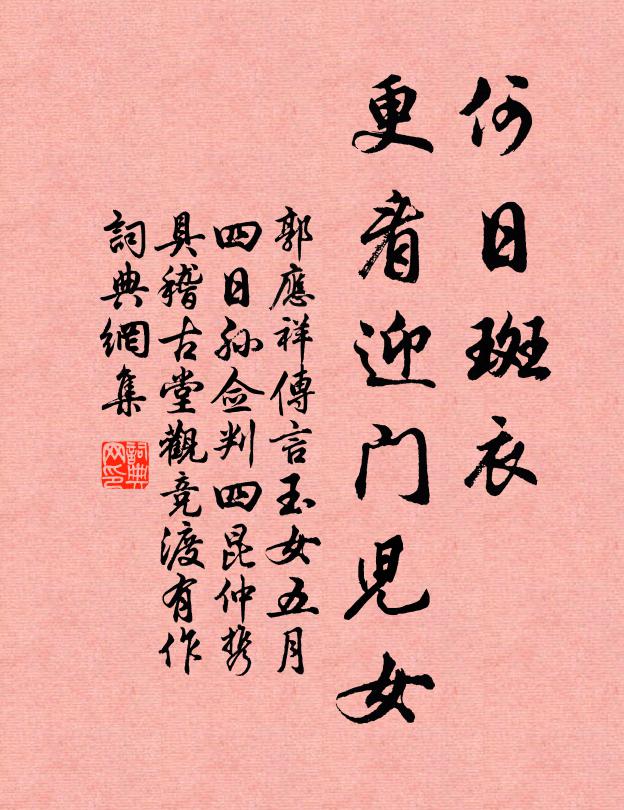 何日斑衣
更看迎门兒女
郭應祥傳言玉女五月
四日孙佥判四昆仲携
具稽古堂觀竞渡有作
詞典網集
詞典
网印